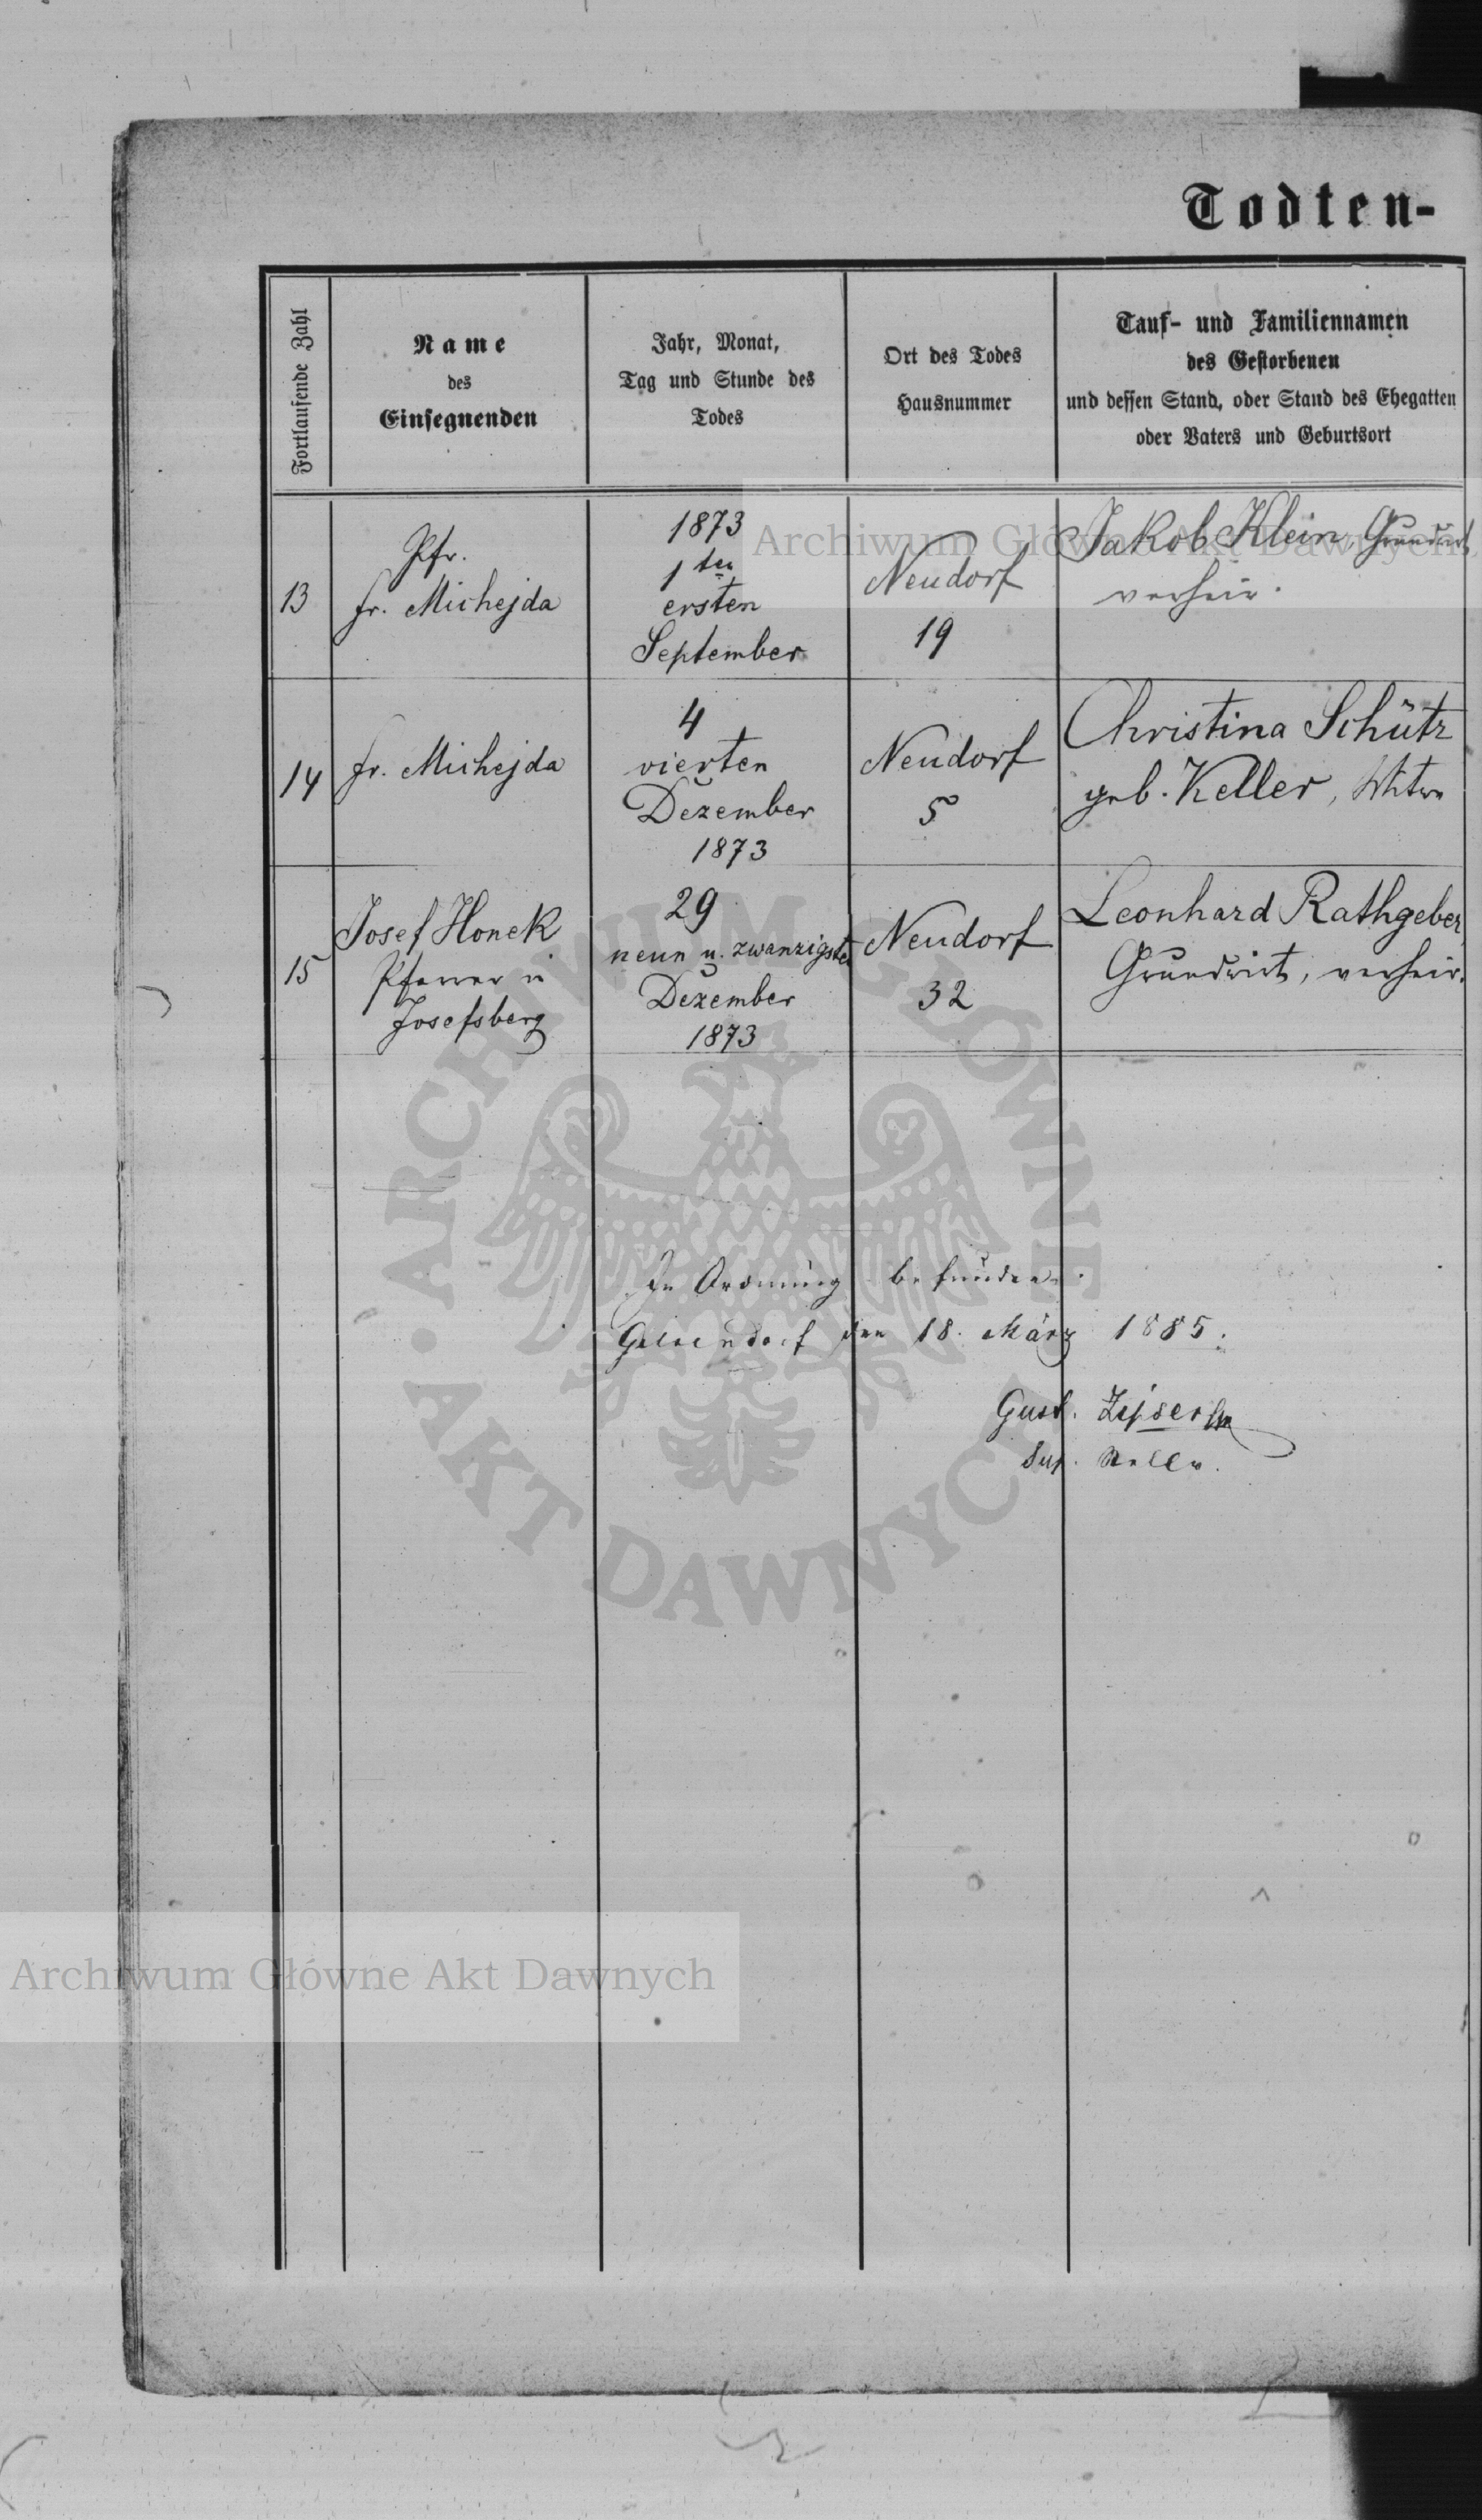 Todten-
Fortlaufende Zahl
Name
des
Einsegnenden
Jahr, Monat,
Tag und Stunde des
Todes
Ort des Todes
Hausnummer
Tauf- und Familiennamen
des Gestorbenen
und dessen Stand, oder Stand des Ehegatten
oder Vaters und Geburtsort
13
Pfr.
Fr. Michejda
1873
1ten
ersten
September
Neudorf
19
Jakob Klein, Grundwirt,
verheir.
14
Fr. Michejda
4
vierten
Dezember
1873
Neudorf
5
Christina Schütz
geb. Keller, Witwe
15
Josef Honek
Pfarrer in
Josefsberg
29
neun u. zwanzigsten
Dezember
1873
Neudorf
32
Leonhard Rathgeber,
Grundwirt, verheir.
In Ordnung befunden.
Gelsendorf den 18. März 1885.
Gust. Zipser
Sup. Stellv.
Archiwum Główne Akt Dawnych
ARCHIWUM GŁÓWNE
AKT DAWNYCH
Archiwum Główne Akt Dawnych